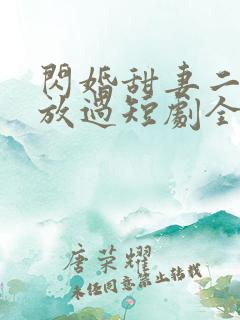 閃婚甜妻二
放過短劇全
唐荣耀
未任同意禁止转载